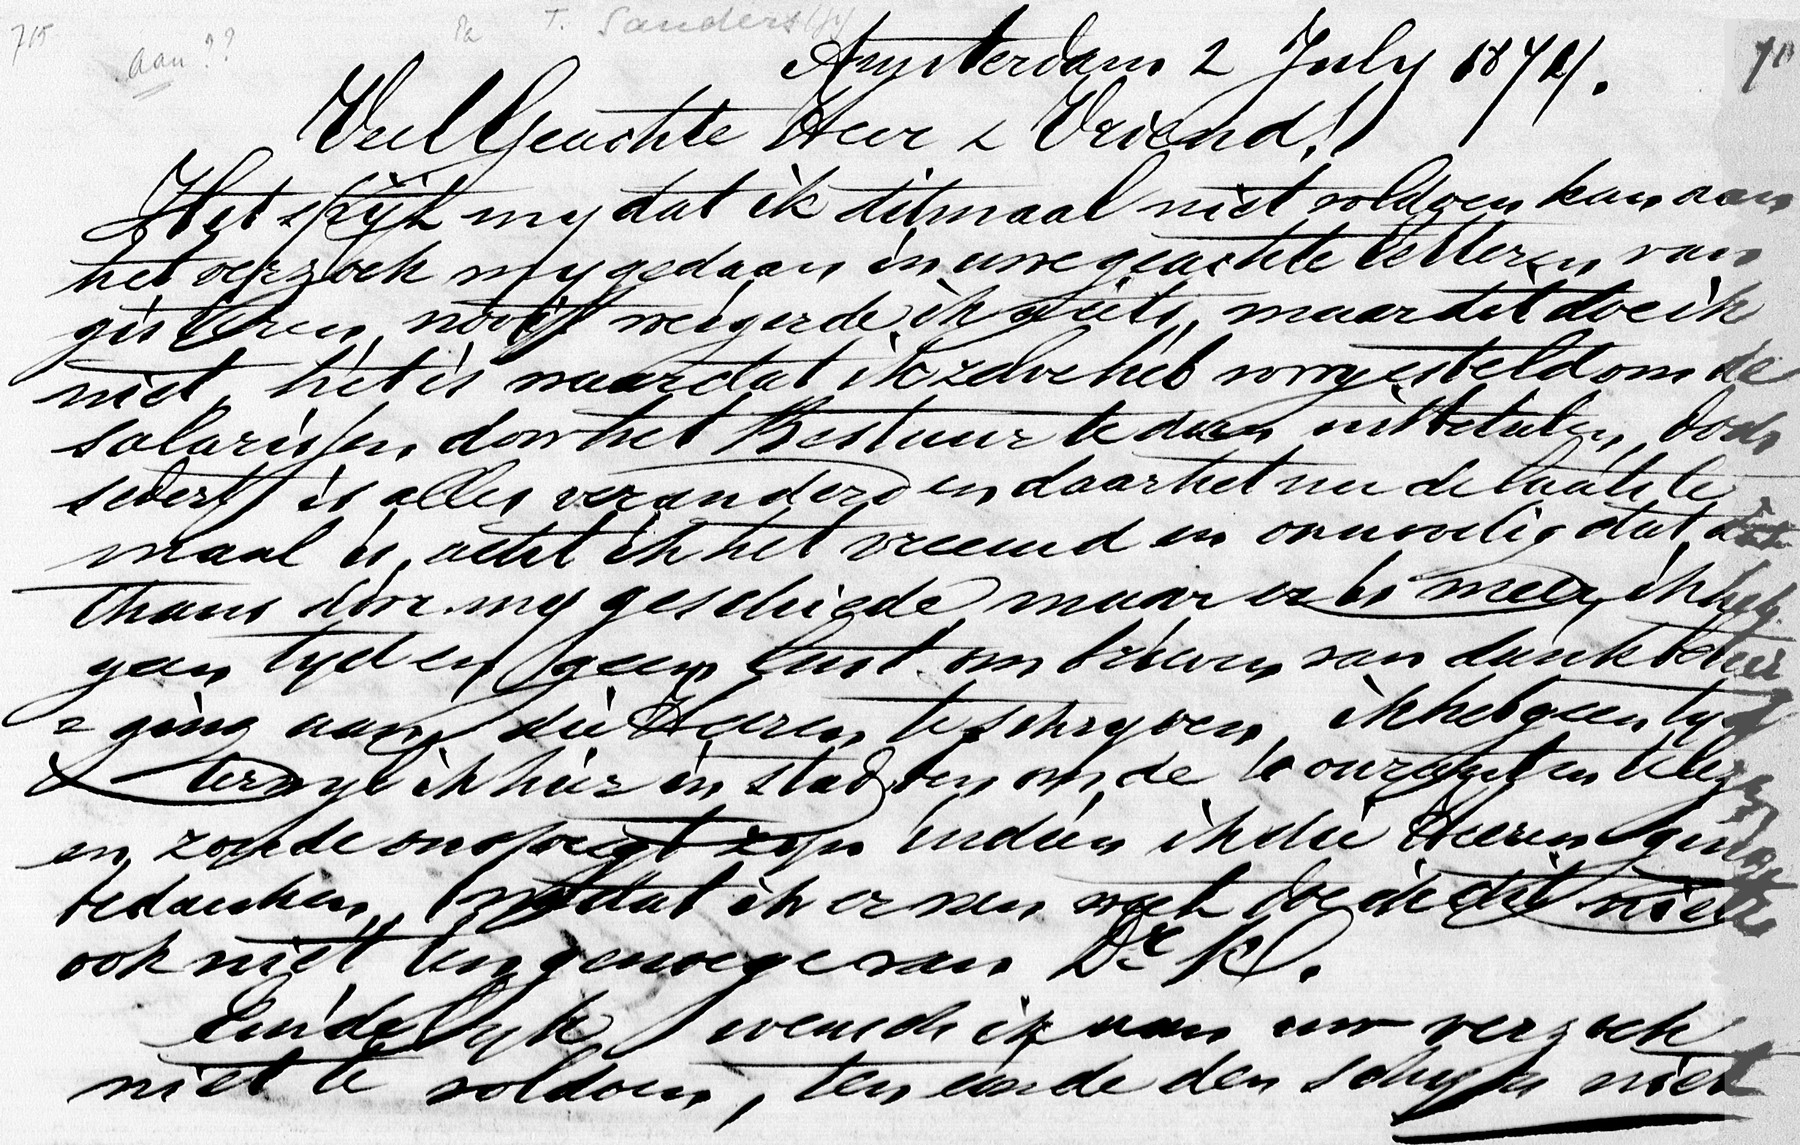 715
aan ??
T. Sanders
Amsterdam 2 July 1874.
WelGeachte Heer & Vriend!
Het spijt my dat ik ditmaal niet voldoen kan aan
het verzoek my gedaan in uwe geachte letteren van
gisteren, nooit weigerde ik iets, maar dit doe ik
niet, het is waar dat ik zelve heb voorgesteld om de
salarissen door het Bestuur te doen uitbetalen, doch
sedert is alles veranderd en daar het nu de laatste
maal is, acht ik het vreemd en onnoodig dat dit
thans door my geschiede, maar er is meer, ik heb
geen tyd en geen lust om brieven van dankbetui
= ging aan die Heeren te schryven, ik heb geen tyd
terwyl ik hier in stad ben om de couranten te lezen
en zoude ongepast zyn indien ik die Heeren ging
bedanken, omdat ik er van weet doe ik dit niet
ook niet ten genoege van Dr. K.
Eindelyk wensch ik aan uw verzoek
niet te voldoen, ten einde den schyn niet